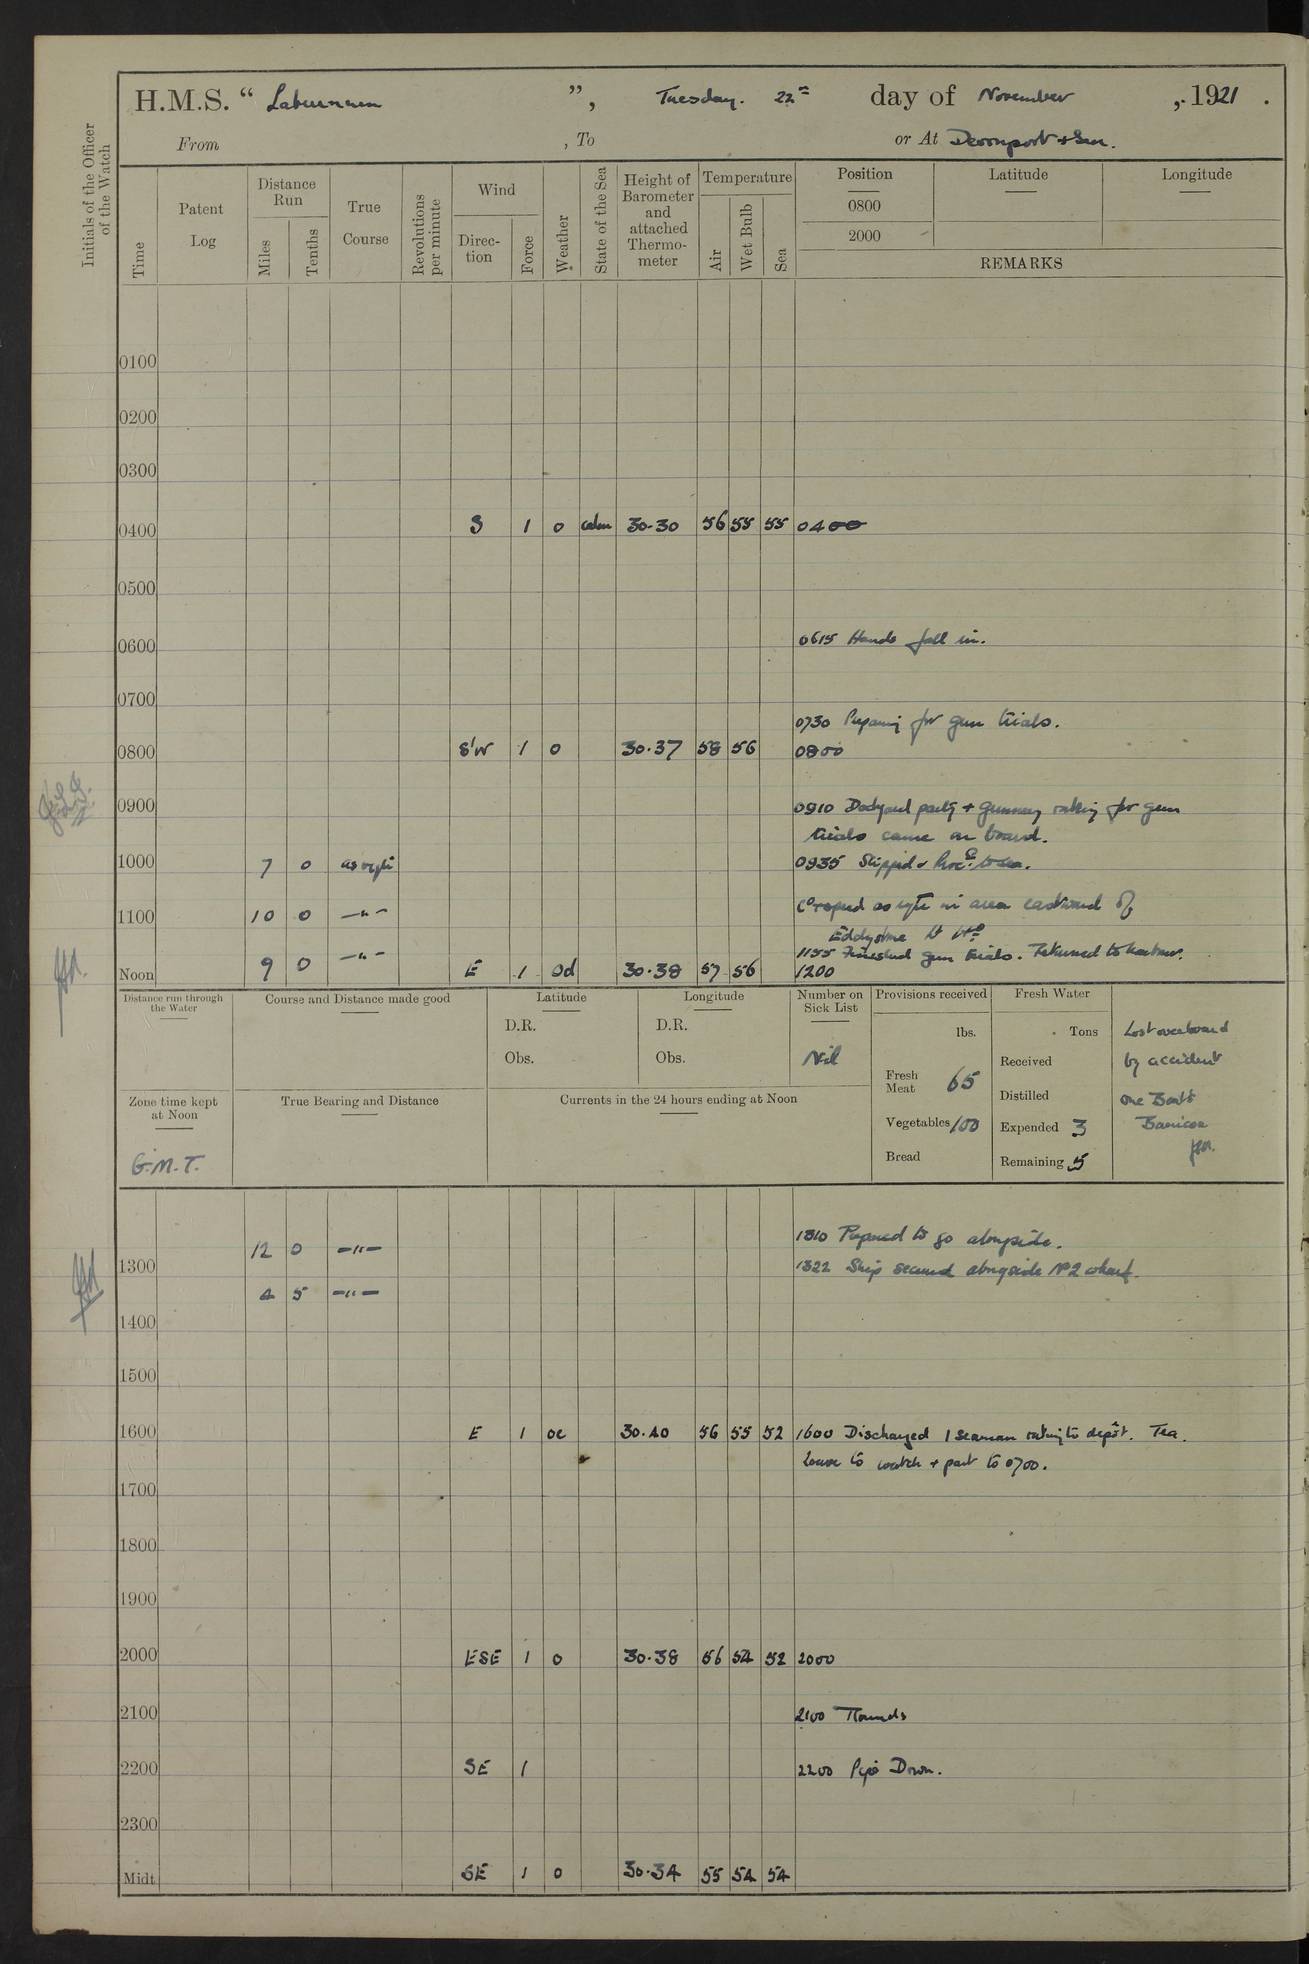 H.M.S. “ Laburnum ”, Tuesday. 22nd day of November , 1921 .
From , To or At Devonport & Sea.
Initials of the Officer of the Watch
Time
Patent Log
Distance Run
Miles
Tenths
True Course
Revolutions per minute
Wind
Direction
Force
Weather
State of the Sea
Height of Barometer and attached Thermometer
Temperature
Air
Wet Bulb
Sea
Position
Latitude
Longitude
0800
2000
REMARKS
0100
0200
0300
0400 S 1 o calm 30.30 56 55 55 0400
0500
0600 0615 Hands fall in.
0700
0730 Preparing for gun trials.
0800 S'W 1 o 30.37 58 56 0800
0900 0910 Dockyard party + gunnery rating for gun
trials came on board.
1000 7 0 as reqte 0935 Slipped & Procd. to sea.
1100 10 0 —"— Co & speed as reqte in area eastward of
Eddystone Lt Ho
1155 Finished gun trials. Returned to harbour.
Noon 9 0 —"— E 1 od 30.38 57 56 1200
Distance run through the Water
Course and Distance made good
Latitude
D.R.
Obs.
Longitude
D.R.
Obs.
Number on Sick List
Nil
Provisions received
lbs.
Fresh Meat 65
Vegetables 100
Bread
Fresh Water
Tons
Received
Distilled
Expended 3
Remaining 5
Lost overboard
by accident
one Boat's
Barricoe
Zone time kept at Noon
G.M.T.
True Bearing and Distance
Currents in the 24 hours ending at Noon
1310 Prepared to go alongside.
1300 12 0 —"— 1322 Ship secured alongside No 2 wharf.
4 5 —"—
1400
1500
1600 E 1 oc 30.40 56 55 52 1600 Discharged 1 seaman rating to depôt. Tea.
Leave to watch + part to 0700.
1700
1800
1900
2000 ESE 1 o 30.38 56 54 52 2000
2100 2100 Rounds
2200 SE 1 2200 Pipe Down.
2300
Midt. SE 1 o 30.34 55 54 54